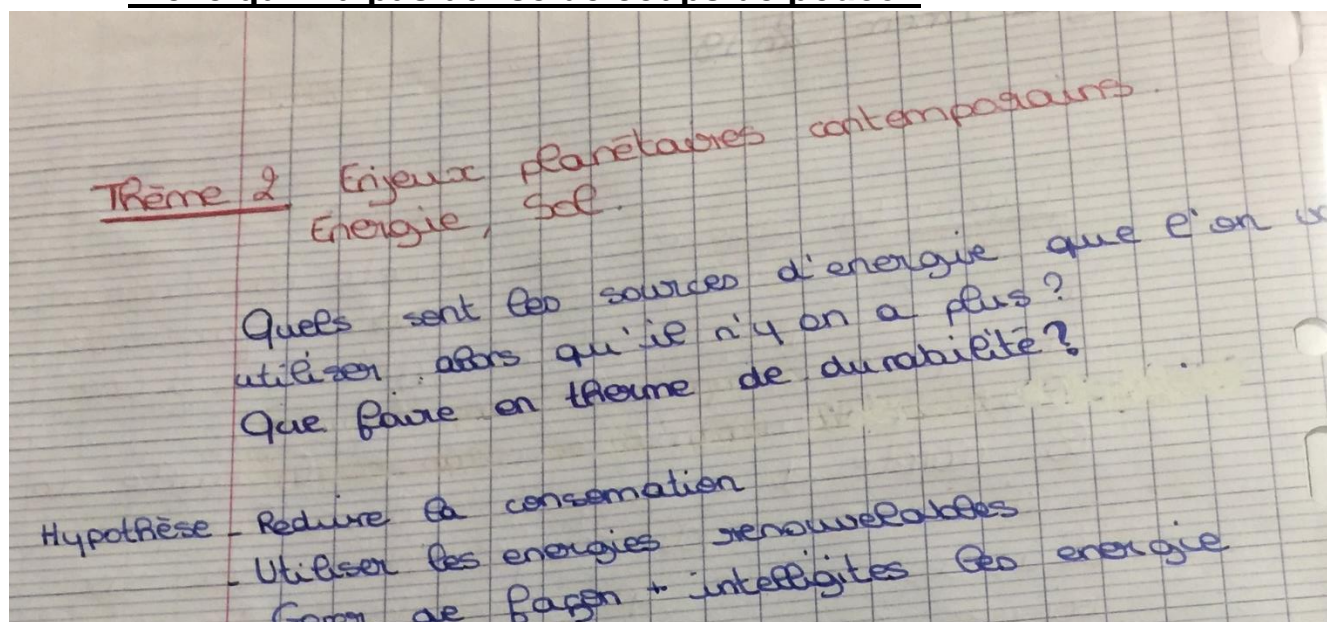 Thème 2 Enjeux planétaires contemporains.
Energie, Sol.
Quels sont les sources d'energie que l'on
utiliser alors qu'il n'y on a plus ?
Que faire en therme de durabilité ?
Hypothèse - Reduire la consomation
- Utiliser les energies renouvelables
de façon + intelligites les energie